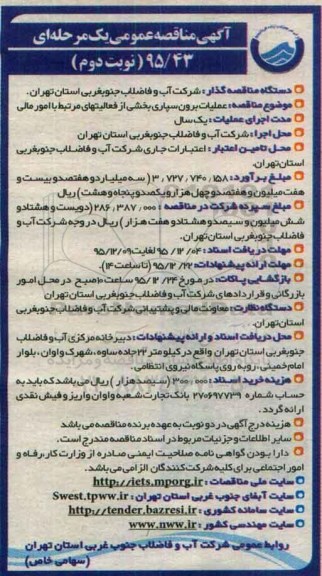 آگهی مناقصه عمومی یک مرحله‌ای
۹۵/۴۳ (نوبت دوم)
دستگاه مناقصه گذار: شرکت آب و فاضلاب جنوبغربی استان تهران.
موضوع مناقصه: عملیات برون سپاری بخشی از فعالیتهای مرتبط با امور مالی
مدت اجرای عملیات: یک سال
محل اجرا: شرکت آب و فاضلاب جنوبغربی استان تهران
محل تامین اعتبار: اعتبارات جاری شرکت آب و فاضلاب جنوبغربی
استان تهران.
مبلغ برآورد: ۳,۷۲۷/۷۴۰/۱۵۸ (سه میلیارد و هفتصد و بیست و
هفت میلیون و هفتصد و چهل هزار و یکصد و پنجاه و هشت) ریال
مبلغ سپرده شرکت در مناقصه: ۲۸۶,۳۸۷/۰۰۰ (دویست و هشتاد و
شش میلیون و سیصد و هشتاد و هفت هزار) ریال در وجه شرکت آب و
فاضلاب جنوبغربی استان تهران.
مهلت دریافت اسناد: ۹۵/۱۲/۰۴ لغایت ۹۵/۱۲/۰۹
مهلت ارائه پیشنهادات: ۹۵/۱۲/۲۲ (تا ساعت ۱۴)
بازگشایی پاکات: در مورخ ۹۵/۱۲/۲۴ ساعت ۱۰ صبح در محل امور
بازرگانی و قراردادهای شرکت آب و فاضلاب جنوبغربی استان تهران
دستگاه نظارت: معاونت مالی و پشتیبانی شرکت آب و فاضلاب جنوبغربی
استان تهران.
محل دریافت اسناد و ارائه پیشنهادات: دبیرخانه مرکزی آب و فاضلاب
جنوبغربی استان تهران واقع در کیلومتر ۲۲ جاده ساوه، شهرک واوان، بلوار
امام خمینی، روبه روی پاسگاه نیروی انتظامی.
هزینه خرید اسناد: ۳۰۰,۰۰۰ (سیصد هزار) ریال می باشد که باید به
حساب شماره ۲۷۰۶۹۷۷۳۹ بانک تجارت شعبه واوان واریز و فیش نقدی
ارائه گردد.
هزینه درج آگهی در دو نوبت به عهده برنده مناقصه می باشد
سایر اطلاعات و جزئیات مربوط در اسناد مناقصه مندرج است.
دارا بودن گواهی نامه صلاحیت ایمنی صادره از وزارت کار، رفاه و
امور اجتماعی برای کلیه شرکت کنندگان الزامی می باشد.
سایت ملی مناقصات: http://iets.mporg.ir
سایت آبفای جنوب غربی استان تهران: Swest.tpww.ir
سایت سامانه کشوری: http://tender.bazresi.ir
سایت مهندسی کشور: www.nww.ir
روابط عمومی شرکت آب و فاضلاب جنوب غربی استان تهران
(سهامی خاص)